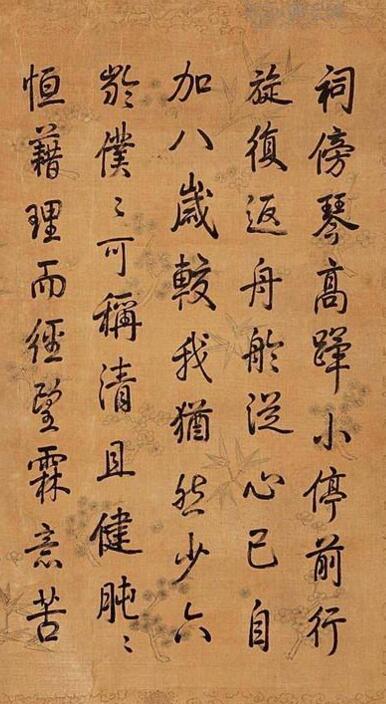 祠傍琴高蹕小停前行
旋復返舟舲從心已自
加八歲較我猶然少六
齡僕〻可稱清且健肫〻
恒藉理而經望霖意苦